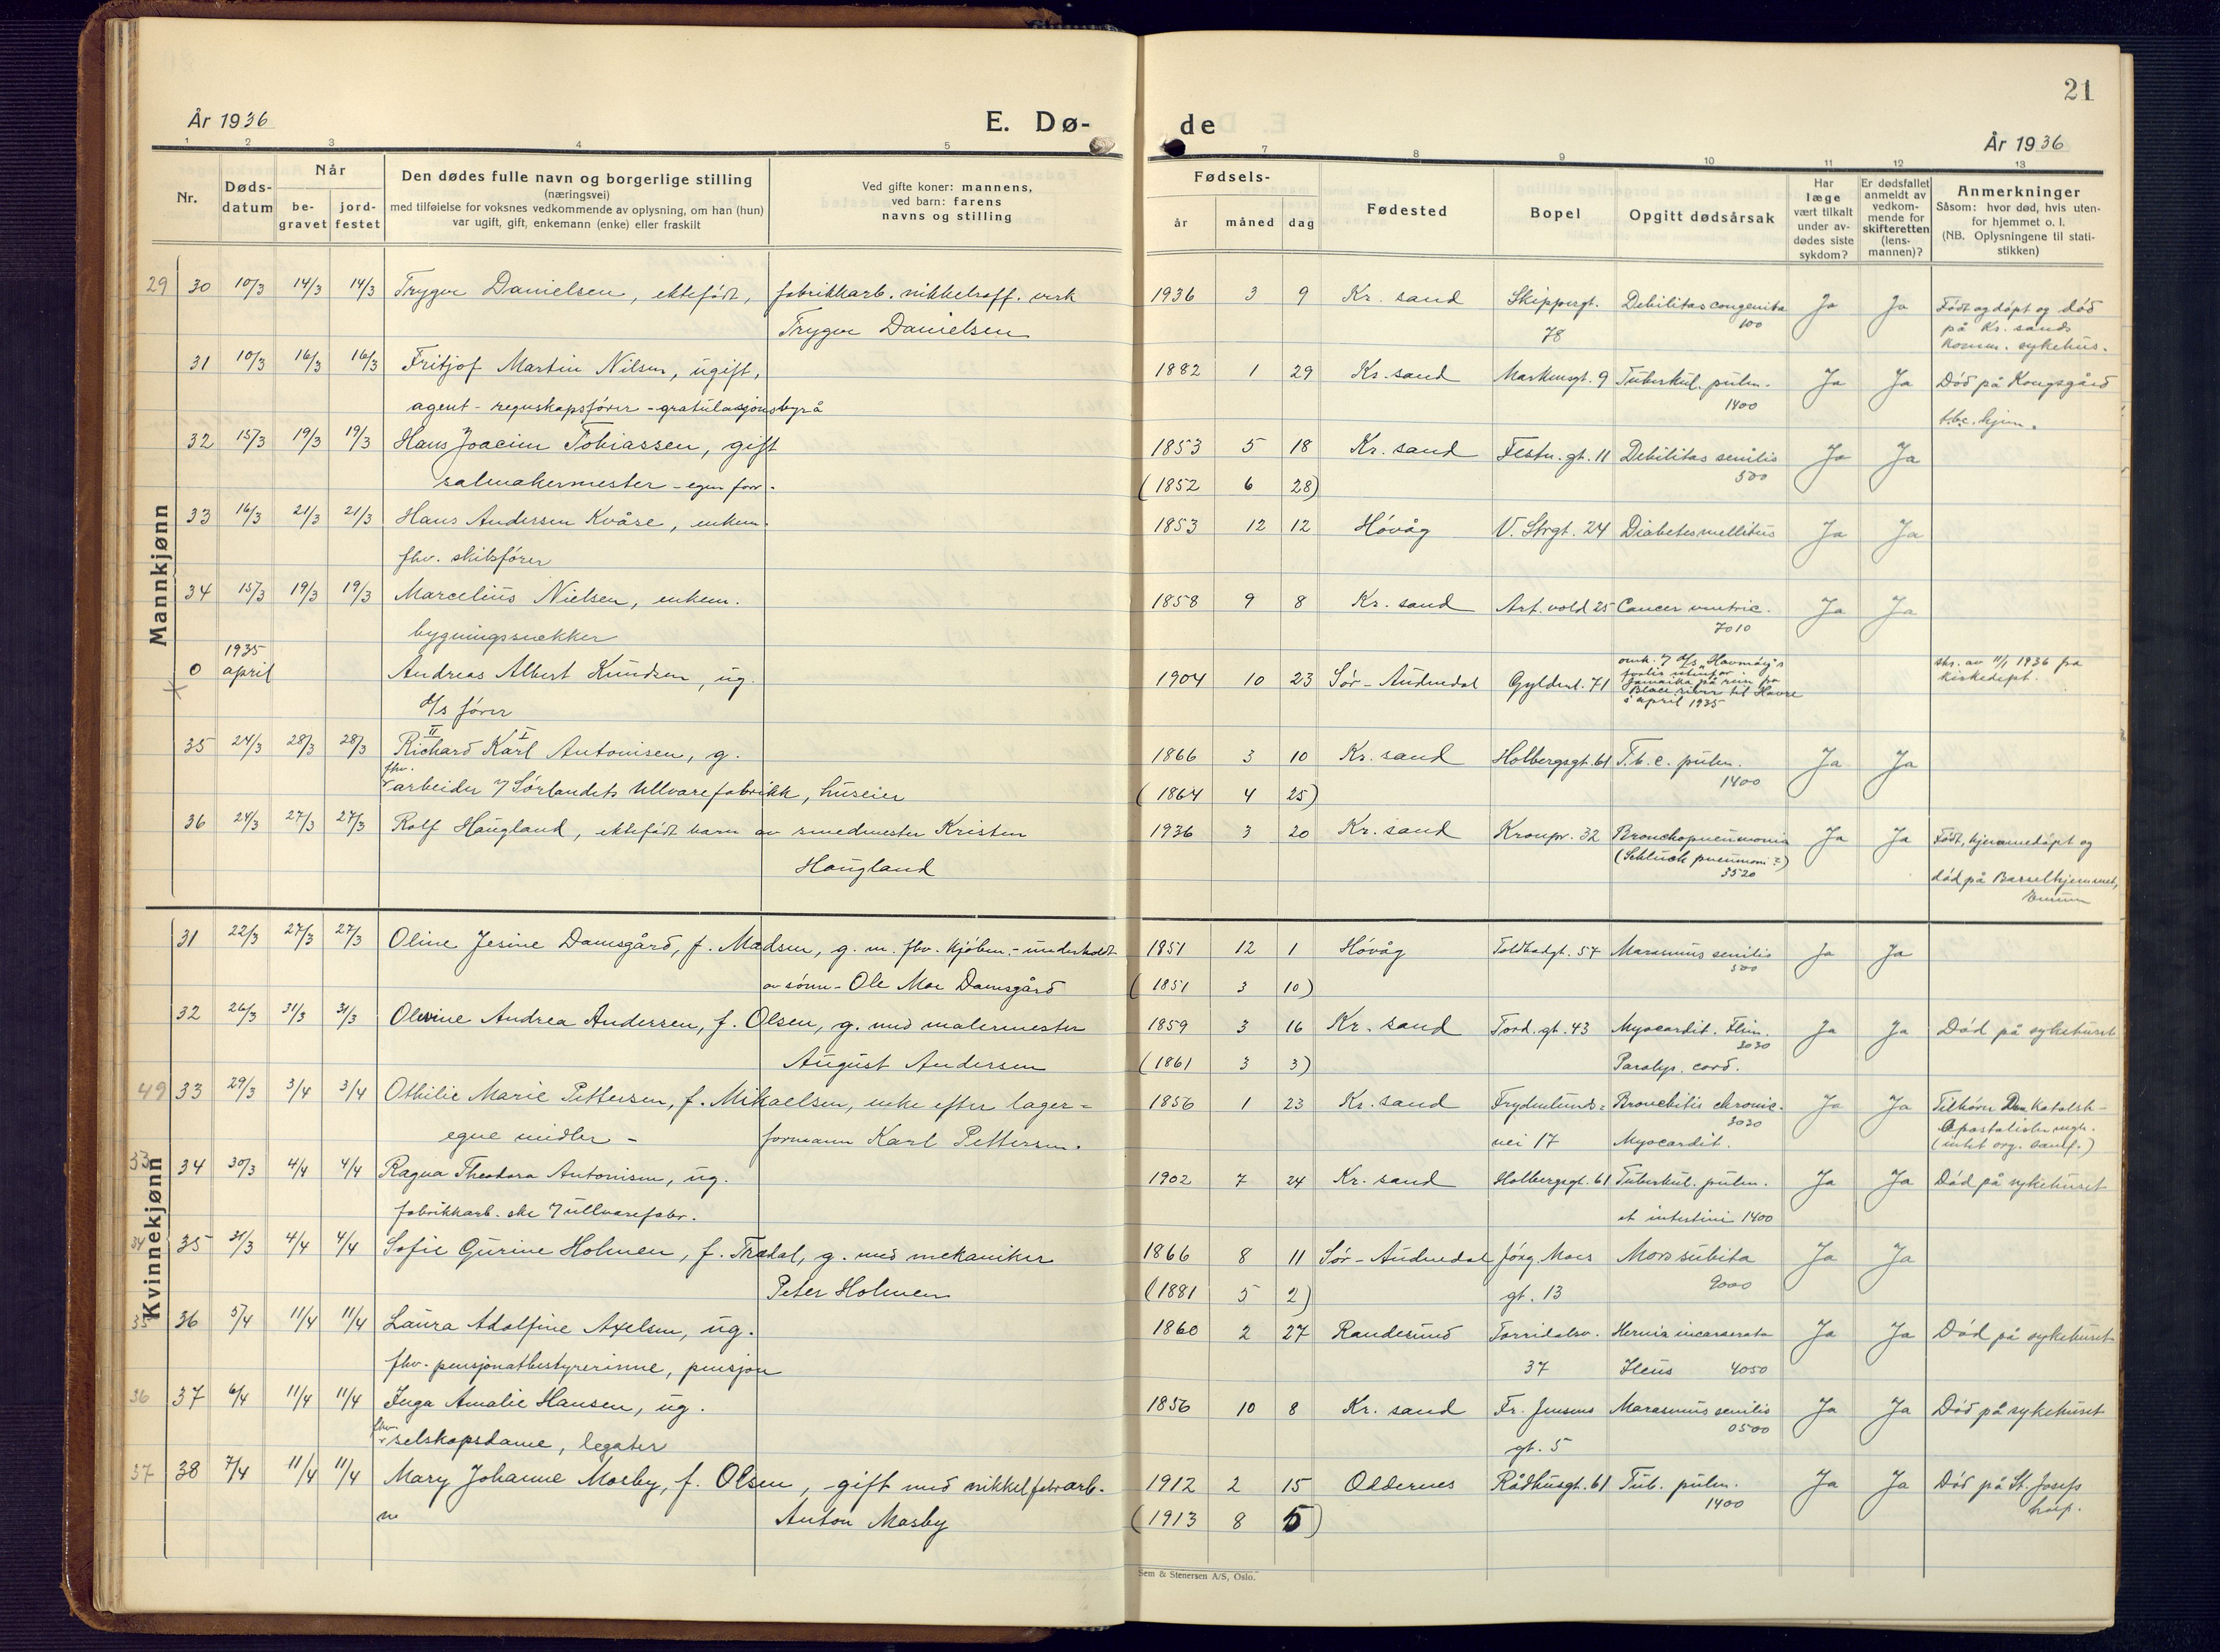 21
År 1936
E. Dø-
de
År 1936
1 2 3 4 5 7 8 9 10 11 12 13
Nr.
Døds-
datum
Når
be-
gravet
jord-
festet
Den dødes fulle navn og borgerlige stilling
(næringsvei)
med tilføielse for voksnes vedkommende av oplysning, om han (hun)
var ugift, gift, enkemann (enke) eller fraskilt
Ved gifte koner: mannens,
ved barn: farens
navns og stilling
Fødsels-
år måned dag
Fødested
Bopel
Opgitt dødsårsak
Har
læge
vært tilkalt
under av-
dødes siste
sykdom?
Er dødsfallet
anmeldt av
vedkom-
mende for
skifteretten
(lens-
mannen)?
Anmerkninger
Såsom: hvor død, hvis uten-
for hjemmet o. l.
(NB. Oplysningene til stati-
stikken)
Mannkjønn
29 30 10/3 14/3 14/3 Trygve Danielsen, ektefødt, fabrikkarb. nikkelraff. verk 1936 3 9 Kr. sand Skippergt. Debilitas congenita Ja Ja Født og døpt og død
Trygve Danielsen 78 100 på Kr. sands
komm. sykehus.
31 10/3 16/3 16/3 Fritjof Martin Nilsen, ugift, 1882 1 29 Kr. sand Markensgt. 9 Tuberkul. pulm. Ja Ja Død på Kongsgård
agent - regnskapsfører - gratulasjonsbyrå 1400 t.b.c. hjem.
32 15/3 19/3 19/3 Hans Joacim Tobiassen, gift 1853 5 18 Kr. sand Festn. gt. 11 Debilitas senilis Ja Ja
salmakermester - egen forr. (1852 6 28) 500
33 16/3 21/3 21/3 Hans Andersen Kvåse, enkem. 1853 12 12 Høvåg V. Strgt. 24 Diabetes mellitus Ja Ja
fhv. skibsfører
34 15/3 19/3 19/3 Marcelius Nielsen, enkem. 1858 9 8 Kr. sand Art. vold 25 Cancer ventric. Ja Ja
bygningssnekker 7010
1935
0 april Andreas Albert Knudsen, ug. 1904 10 23 Sør-Audnedal Gyldenl. 71 omk. d/s "Havmøy"s
d/s fører forlis utenfor
Jamaika på reise fra
Black river til Havre
i april 1935
skr. av 11/1 1936 fra
kirkedept.
II I
35 24/3 28/3 28/3 Richard Karl Antonisen, g. 1866 3 10 Kr. sand Holbergsgt. 61 T.b.c. pulm. Ja Ja
fhv.
arbeider v/ Sørlandets Ullvarefabrikk, huseier (1864 4 25) 1400
36 24/3 27/3 27/3 Rolf Haugland, ektefødt barn av smedmester Kristen 1936 3 20 Kr. sand Kronpr. 32 Bronchopneumonia Ja Ja Født, hjemmedøpt og
Haugland (Schluck pneumoni?) død på Barselhjemmet,
3520
Kvinnekjønn
31 22/3 27/3 27/3 Oline Jesine Damsgård, f. Madsen, g. m. fhv. kjøbm. - underholdt 1851 12 1 Høvåg Toldbodgt. 57 Marasmus senilis Ja Ja
av sønn - Ole Moe Damsgård (1851 3 10) 500
32 26/3 31/3 31/3 Olevine Andrea Andersen, f. Olsen, g. med malermester 1859 3 16 Kr. sand Tord. gt. 43 Myocardit. Ja Ja Død på sykehuset
August Andersen (1861 3 3) 3030
Paralys. cord.
49 33 29/3 3/4 3/4 Othilie Marie Pettersen, f. Mikaelsen, enke efter lager- 1856 1 23 Kr. sand Frydenlunds- Bronchitis chronic. Ja Ja Tilhører Den Katolsk-
egne midler - formann Karl Pettersen. vei 17 3030 Myocardit. Apostoliske mgh.
(intet org. samf.)
33 34 30/3 4/4 4/4 Ragna Theodora Antonisen, ug. 1902 7 24 Kr. sand Holbergsgt. 61 Tuberkul. pulm. Ja Ja Død på sykehuset
fabrikkarb. ske v/ ullvarefabr. et intestini 1400
34 35 31/3 4/4 4/4 Sofie Gurine Holmen, f. Trædal, g. med mekaniker 1866 8 11 Sør-Audnedal Jørg. Moes Mors subita Ja Ja
Peter Holmen (1881 5 2) gt. 13 9000
35 36 5/4 11/4 11/4 Laura Adolfine Axelsen, ug. 1860 2 27 Randesund Torridalsv. Hernia incarserata Ja Ja Død på sykehuset
fhv. pensjonatbestyrerinne, pensjon 37 Ileus 4050
36 37 6/4 11/4 11/4 Inga Amalie Hansen, ug. 1856 10 8 Kr. sand Fr. Jensens Marasmus senilis Ja Ja Død på sykehuset
fhv.
selskapsdame, legater gt. 5 0500
37 38 7/4 11/4 11/4 Mary Johanne Mosby, f. Olsen, gift med nikkelfabrarb. 1912 2 15 Oddernes Rådhusgt. 61 Tub. pulm. Ja Ja Død på St. Josefs
Anton Mosby (1913 8 5) 1400 hosp.
Sem & Stenersen A/S, Oslo.